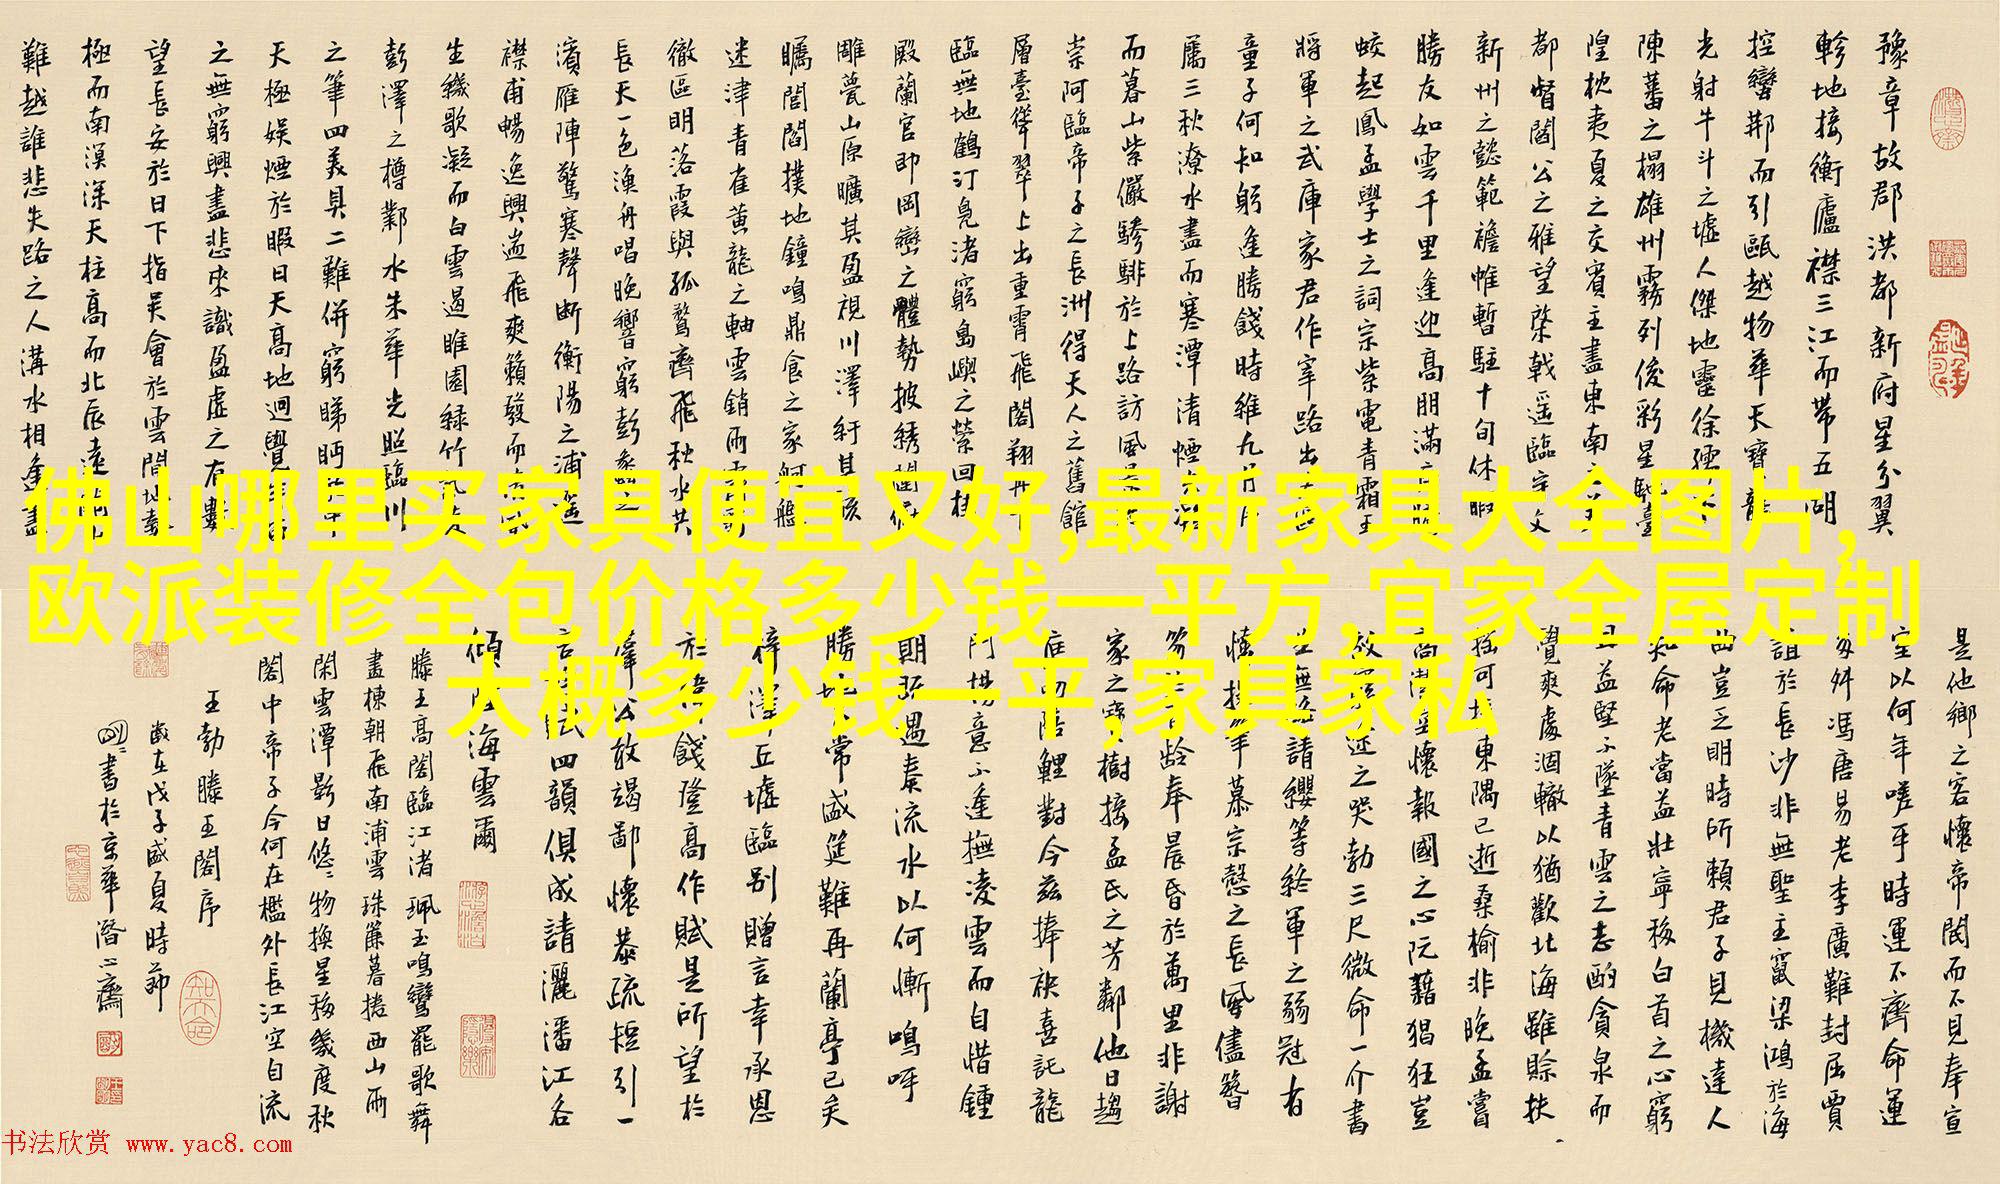 豫章故郡洪都新府星分翼
軫地接衡廬襟三江而帶五湖
控蠻荊而引甌越物華天寶龍
光射牛斗之墟人傑地靈徐孺
陳蕃之榻雄州霧列俊彩星馳臺
隍枕夷夏之交賓主盡東南
都督閻公之雅望棨戟遥臨宇文
新州之懿範襜帷暫駐十旬休暇
勝友如雲千里逢迎高朋滿
蛟起鳳孟學士之詞宗紫電青霜王
將軍之武庫家君作宰路出
童子何知躬逢勝餞時維九月
屬三秋潦水盡而寒潭清煙
而暮山紫儼驂騑於上路訪風景
崇阿臨帝子之長洲得天人之舊館
層臺聳翠上出重霄飛閣翔丹下
臨無地鶴汀鳧渚窮島嶼之縈回桂
殿蘭宮即岡巒之體勢披綉闥俯
雕甍山原曠其盈視川澤紆其駭
矚閭閻撲地鐘鳴鼎食之家舸艦
迷津青雀黃龍之軸雲銷雨
徹區明落霞與孤鶩齊飛秋水共
長天一色漁舟唱晚響窮彭蠡之
濱雁陣驚寒聲斷衡陽之浦遥
襟甫暢逸興遄飛爽籟發而
生纖歌凝而白雲遏睢園緑竹
彭澤之樽鄴水朱華光照臨川
之筆四美具二難併窮睇眄
天極娱煙於暇日天高地迥覺
之無窮興盡悲來識盈虛之有數
望長安於日下指吳會於雲間地勢
極而南溟深天柱高而北辰遠
難越誰悲失路之人溝水相逢盡
佛山哪里买家具便宜又好,最新家具大全图片,
欧派装修全包价格多少钱一平方,宜家全屋定制
大概多少钱一平,家具家私
是他鄉之客懷帝閽而不見奉宣
室以何年嗟乎時運不齊命運
舛馮唐易老李廣難封屈賈
誼於長沙非無聖主竄梁鴻於海
曲豈乏明時所賴君子見機達人
知命老當益壯寧移白首之心窮
且益堅不墜青雲之志酌貪泉而
覺爽處涸轍以猶歡北海雖賒扶
搖可接東隅已逝桑榆非晚孟嘗
高潔空懷報國之心阮藉猖狂豈
效窮途之哭勃三尺微命一介書
生無路請纓等終軍之弱冠有
懷投筆慕宗慤之長風儘簪
笏於百齡奉晨昏於萬里非謝
家之寶樹接孟氏之芳鄰他日趨
庭叨陪鯉對今茲捧袂喜託龍
門楊意不逢撫凌雲而自惜鍾
期既遇奏流水以何慚嗚呼
勝地常盛筵難再蘭亭已矣
梓澤丘墟臨别贈言幸承恩
於偉餞登高作賦是所望於
羣公敢竭鄙懷恭疏短引一
言四韻俱成請灑潘江各
傾陸海雲爾
滕王高閣臨江渚珮玉鳴鸞罷歌舞
畫棟朝飛南浦雲珠簾暮捲西山雨
閑雲潭影日悠悠物換星移幾度秋
閣中帝子今何在檻外長江空自流
王勃滕王閣序
歲在戊子盛夏時節
書於京華潛心齋
书法欣赏 www.yac8.com